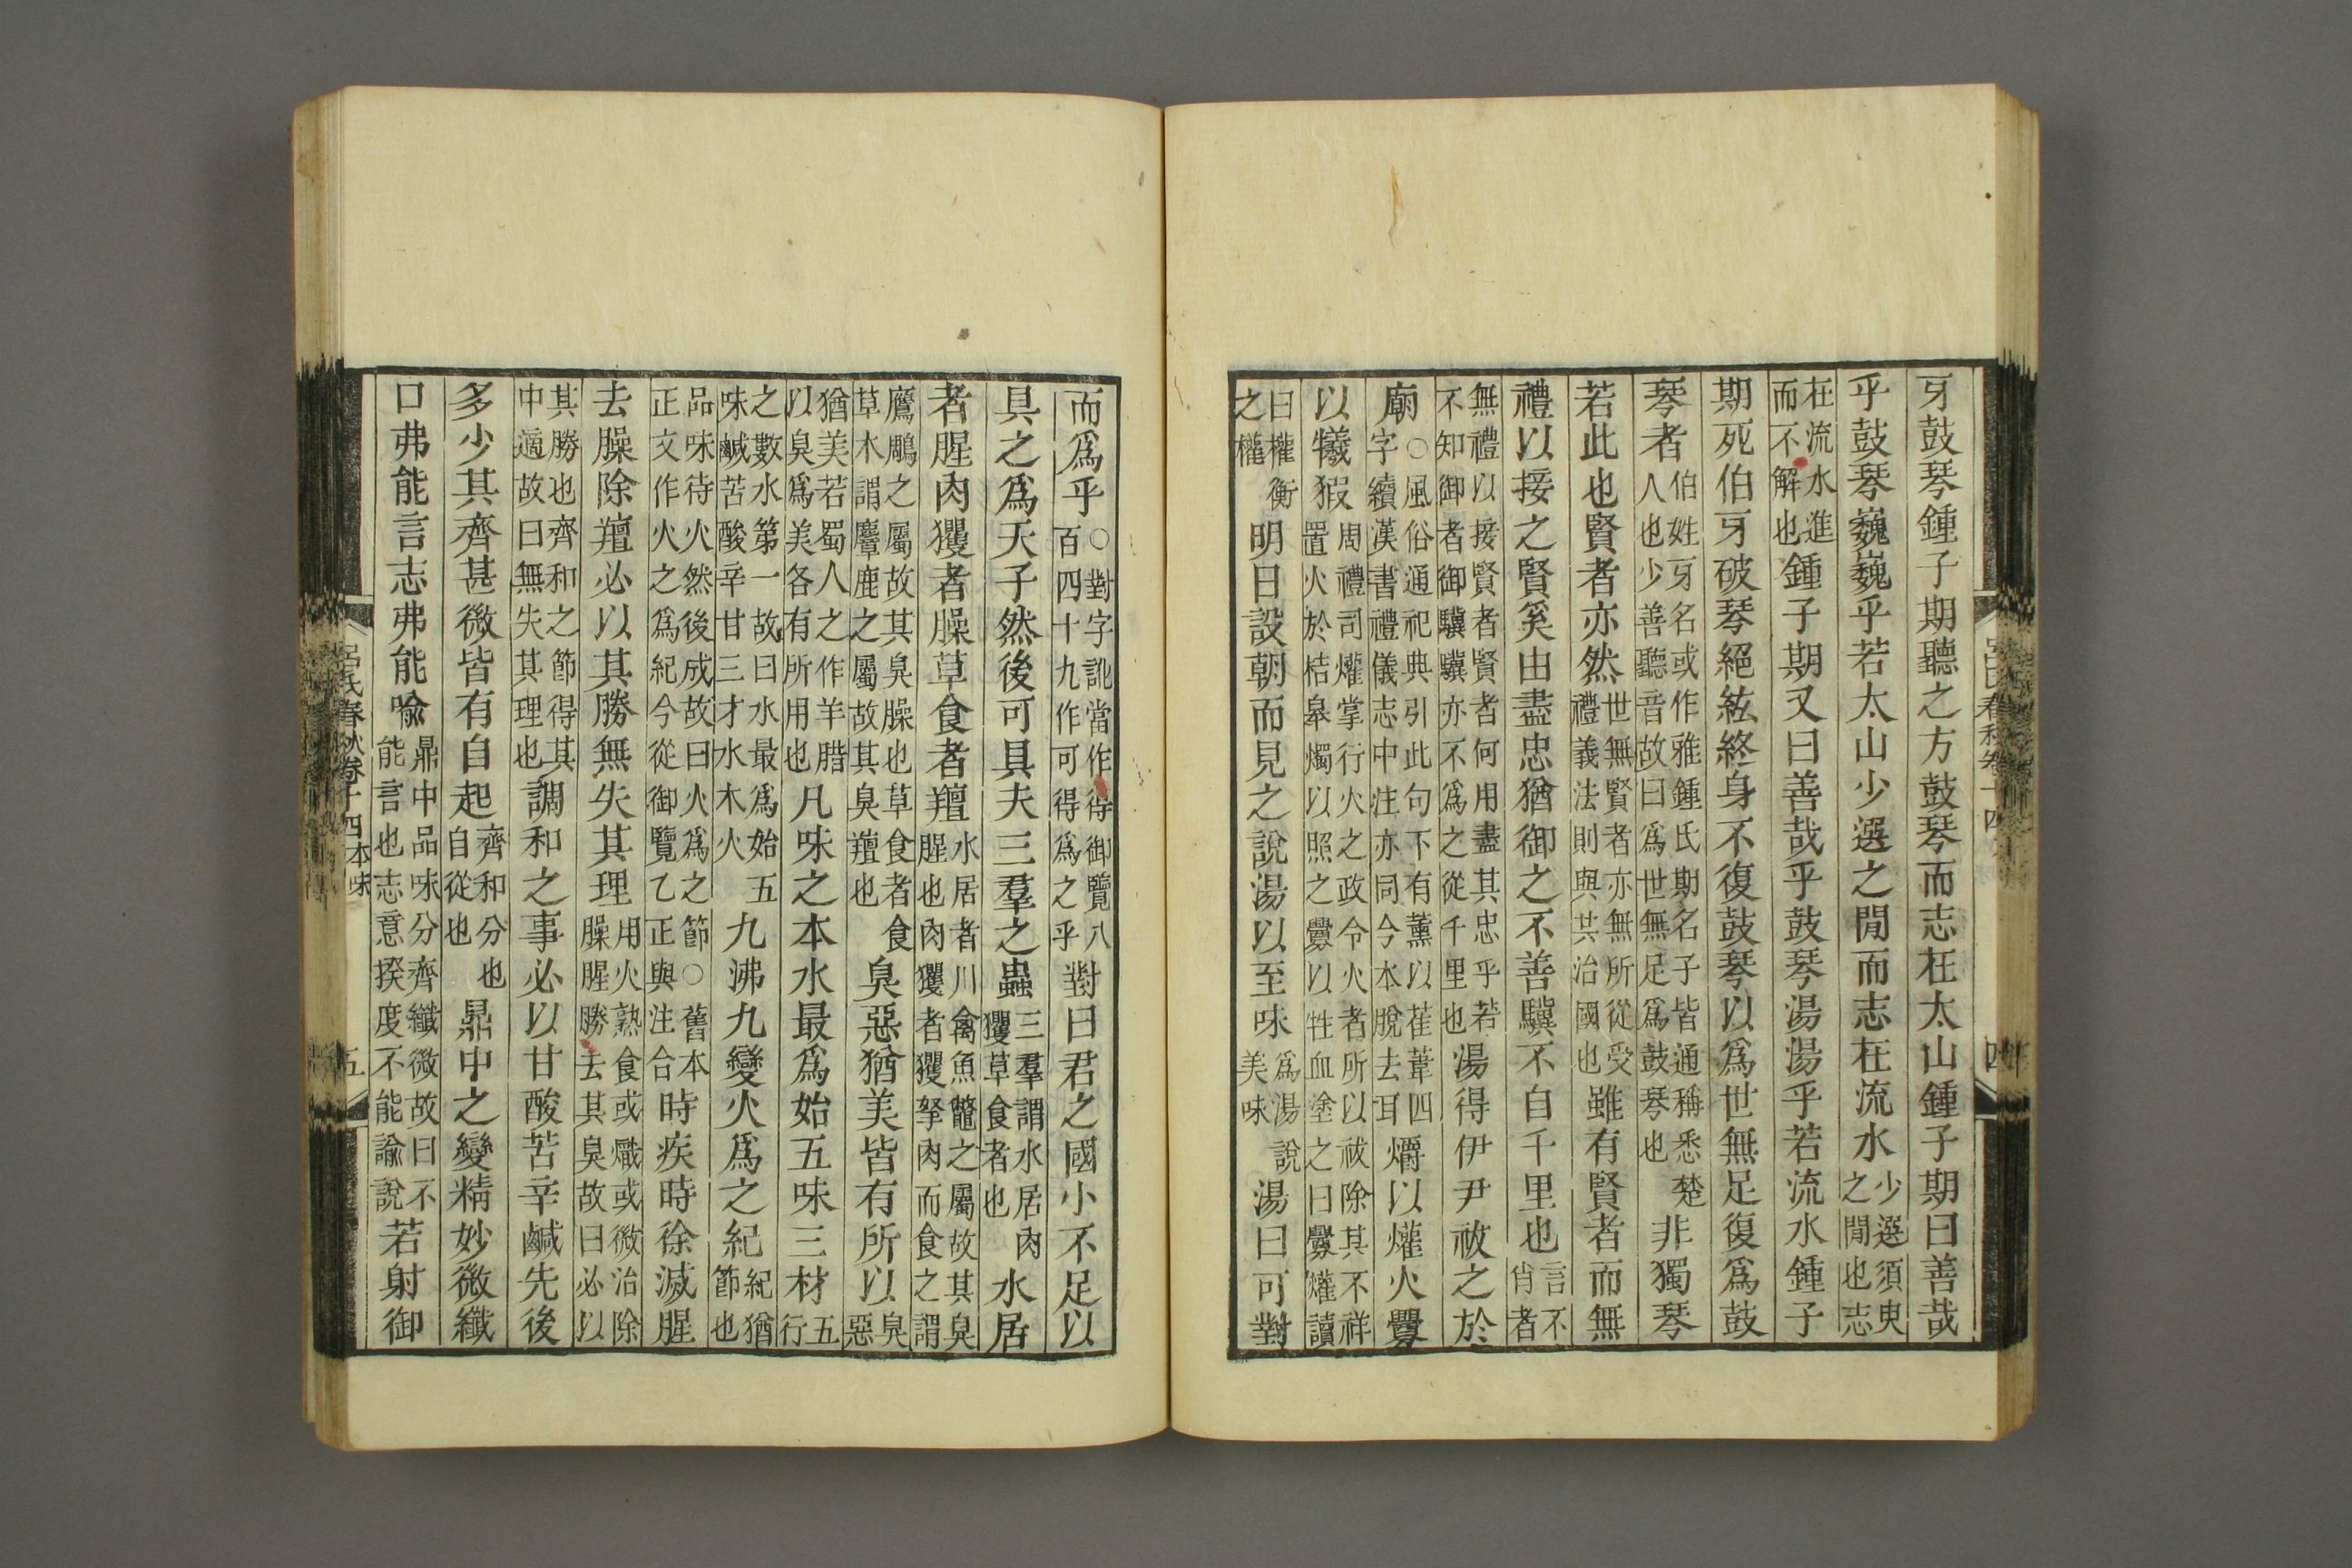 牙鼓琴鍾子期聽之方鼓琴而志在太山鍾子期曰善哉
乎鼓琴巍巍乎若太山少選之閒而志在流水少選須臾之閒也志
在流水進而不解也鍾子期又曰善哉乎鼓琴湯湯乎若流水鍾子
期死伯牙破琴絕絃終身不復鼓琴以爲世無足復爲鼓
琴者伯姓牙名或作雅鍾氏期名子皆通稱悉楚人也少善聽音故曰爲世無足爲鼓琴也非獨琴
若此也賢者亦然世無賢者亦無所從受禮義法則與共治國也雖有賢者而無
禮以接之賢奚由盡忠猶御之不善驥不自千里也言不肖者
無禮以接賢者賢者何用盡其忠乎若不知御者御驥驥亦不爲之從千里也湯得伊尹祓之於
廟○風俗通祀典引此句下有薰以萑葦四字續漢書禮儀志中注亦同今本脫去耳爝以爟火釁
以犧猳周禮司爟掌行火之政令火者所以祓除其不祥置火於桔皋燭以照之釁以牲血塗之曰釁爟讀
曰權衡之權明日設朝而見之說湯以至味爲湯說美味湯曰可對
而爲乎○對字訛當作得御覽八百四十九作可得爲之乎對曰君之國小不足以
具之爲天子然後可具夫三羣之蟲三羣謂水居肉玃草食者也水居
者腥肉玃者臊草食者羶水居者川禽魚鼈之屬故其臭腥也肉玃者玃拏肉而食之謂
鷹鵰之屬故其臭臊也草食者食草木謂麞鹿之屬故其臭羶也臭惡猶美皆有所以臭惡
猶美若蜀人之作羊腊以臭爲美各有所用也凡味之本水最爲始五味三材五行
之數水第一故曰水最爲始五味鹹苦酸辛甘三才水木火九沸九變火爲之紀紀猶節也
品味待火然後成故曰火爲之節○舊本正文作火之爲紀今從御覽乙正與注合時疾時徐滅腥
去臊除羶必以其勝無失其理用火熟食或熾或微治除臊腥勝去其臭故曰必以
其勝也齊和之節得其中適故曰無失其理也調和之事必以甘酸苦辛鹹先後
多少其齊甚微皆有自起齊和分也自從也鼎中之變精妙微纖
口弗能言志弗能喻鼎中品味分齊纖微故曰不能言也志意揆度不能諭說若射御
呂氏春秋卷十四本味 五